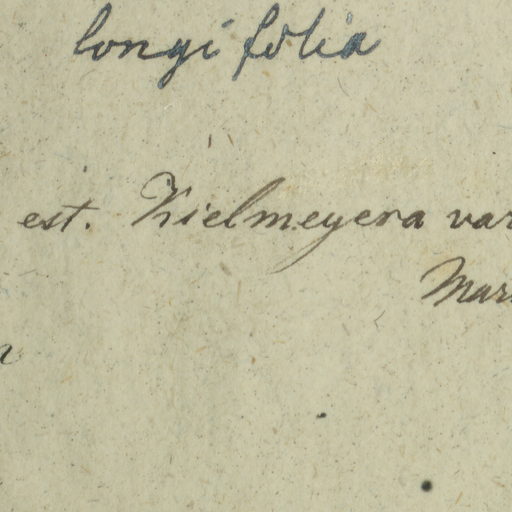 longifolia
est. Kielmeyera var
Mar
n